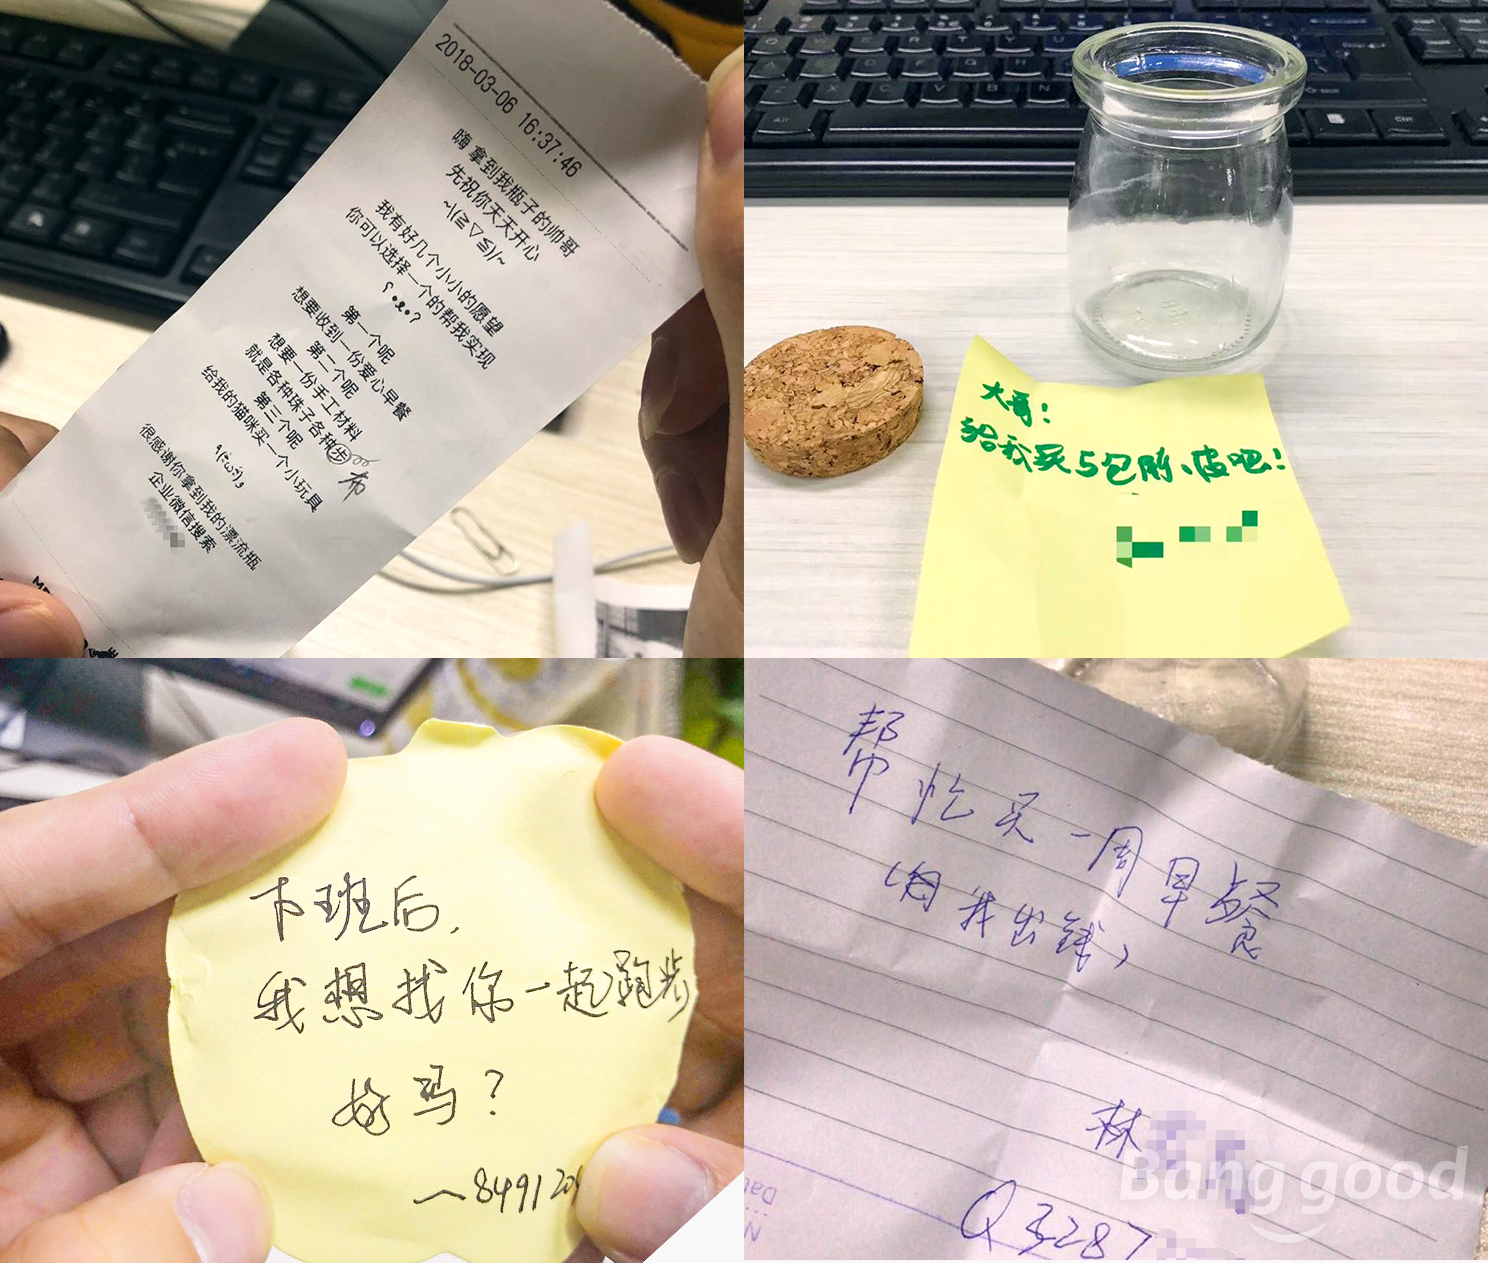 2018-03-06 16:37:46
嗨 拿到我瓶子的帅哥
先祝你天天开心
~\(≧▽≦)/~
我有好几个小小的愿望
你可以选择一个的帮我实现
第一个呢
想要收到一份爱心早餐
第二个呢
想要一份手工材料
就是各种珠子各种步
布
第三个呢
给我的猫咪买一个小玩具
很感谢你拿到我的漂流瓶
企业微信搜索
大哥!
给我买5包附、皮吧!
下班后,
我想找你一起跑步
好吗?
帮忙买一周早餐
(由我出钱)
林
Q3287
Bang good